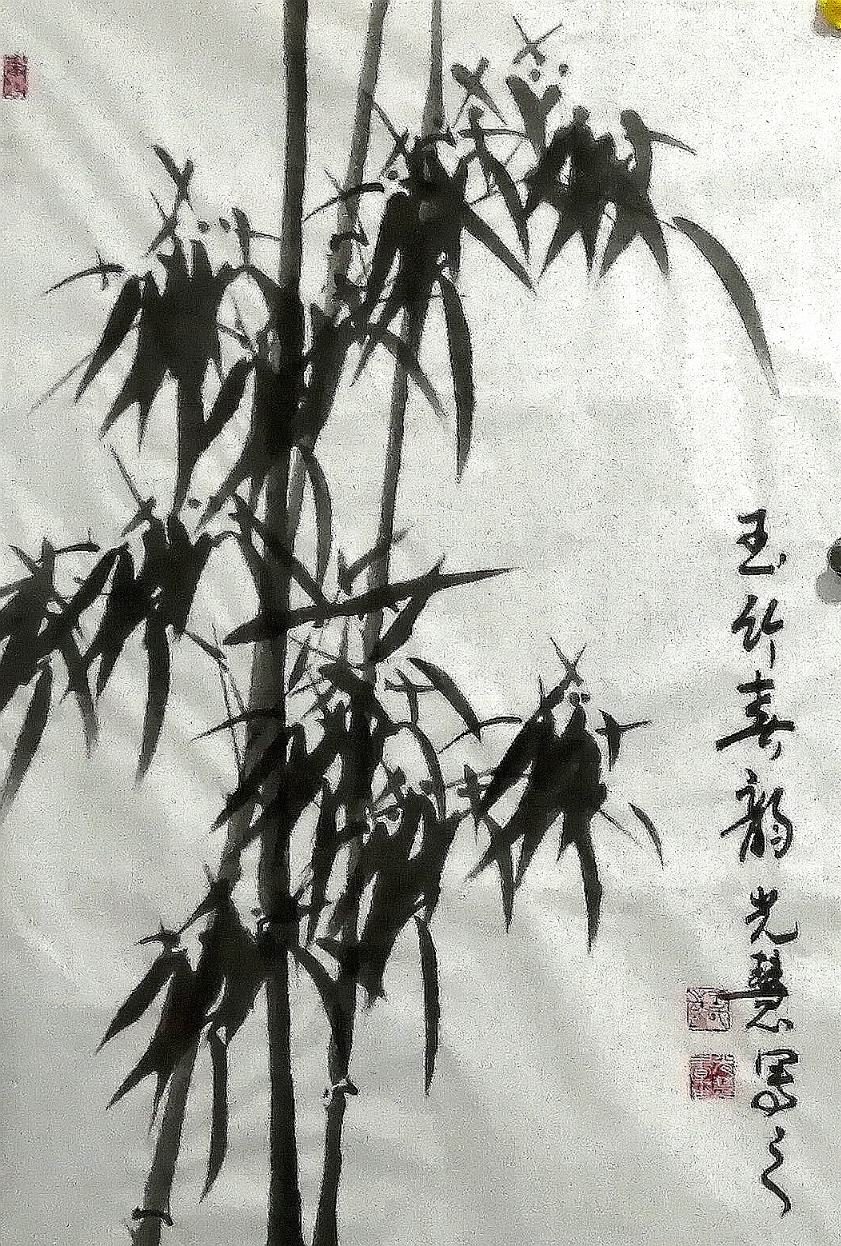 玉竹春韵光慧写之